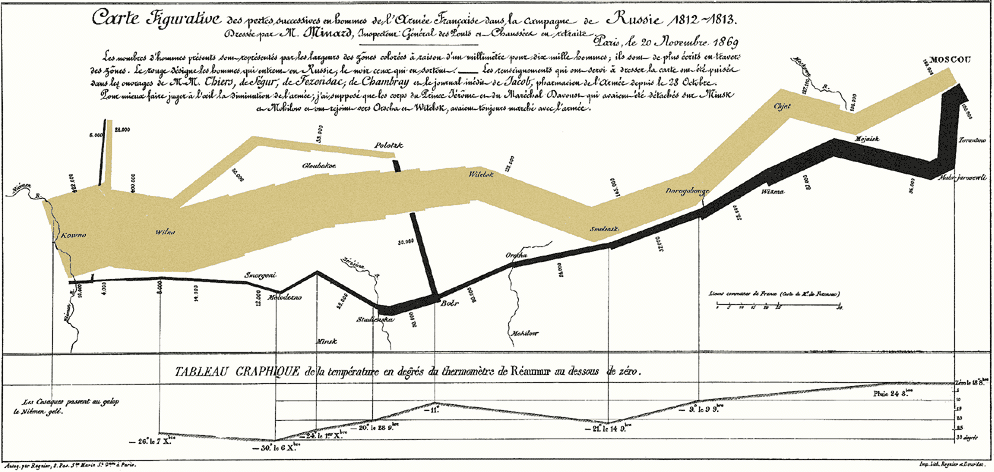 Carte Figurative des pertes successives en hommes de l'Armée Française dans la campagne de Russie 1812-1813.
Dressée par M. Minard, Inspecteur Général des Ponts et Chaussées en retraite
Paris, le 20 Novembre 1869
Les nombres d'hommes présents sont représentés par les largeurs des zones colorées à raison d'un millimètre pour dix mille hommes; ils sont de plus écrits en travers
des zones. Le rouge désigne les hommes qui entrent en Russie, le noir ceux qui en sortent. Les renseignements qui ont servi à dresser la carte ont été puisés
dans les ouvrages de M.M. Thiers, de Ségur, de Fezensac, de Chambray et le journal inédit de Jacob, pharmacien de l'Armée depuis le 28 Octobre.
Pour mieux faire juger à l'œil la diminution de l'armée, j'ai supposé que les corps du Prince Jérôme et du Maréchal Davoust qui avaient été détachés sur Minsk
et Mohilow et ont rejoint vers Orscha et Witebsk, avaient toujours marché avec l'armée.
MOSCOU
100.000
Chjat
Mojaisk
Tarantino
Malo-jarosewli
6.000
22.000
33.000
Polotzk
Gloubokoe
Witebsk
Dorogobouge
Wizma
Smolensk
Niémen R.
Kowno
Wilna
30.000
Orscha
Smorgoni
Molodezno
Studienska
Bobr
Minsk
Mohilow
4.000
8.000
14.000
12.000
20.000
24.000
Lieues communes de France (Carte de M. de Fezensac)
TABLEAU GRAPHIQUE de la température en degrés du thermomètre de Réaumur au dessous de zéro.
Les Cosaques passent au galop
le Niémen gelé.
Zéro le 18 8bre
Pluie 24 8bre
— 9° le 9 9bre
— 21° le 14 9bre
— 11°
— 20° le 28 9bre
— 24° le 1er Xbre
— 30° le 6 Xbre
— 26° le 7 Xbre
5
10
15
20
25
30 degrés
Autog. par Regnier, 8. Pas. Ste Marie St Gain à Paris.
Imp. Lith. Regnier et Dourdet